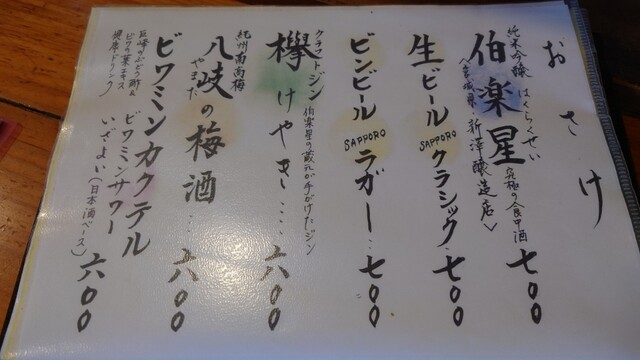 おさけ
純米吟醸 はくらくせい 究極の食中酒
伯楽星 七〇〇
〈宮城県 新澤醸造店〉
生ビール SAPPORO クラシック‥七〇〇
ビンビール SAPPORO ラガー‥七〇〇
クラフトジン 伯楽星の蔵元が手がけたジン
欅 けやき‥‥六〇〇
紀州南高梅
八岐の梅酒‥六〇〇
やまた
ビワミンカクテル
ビワミンサワー
いざよい(日本酒ベース) 六〇〇
巨峰のぶどう酢&
ビワの葉エキス
健康ドリンク